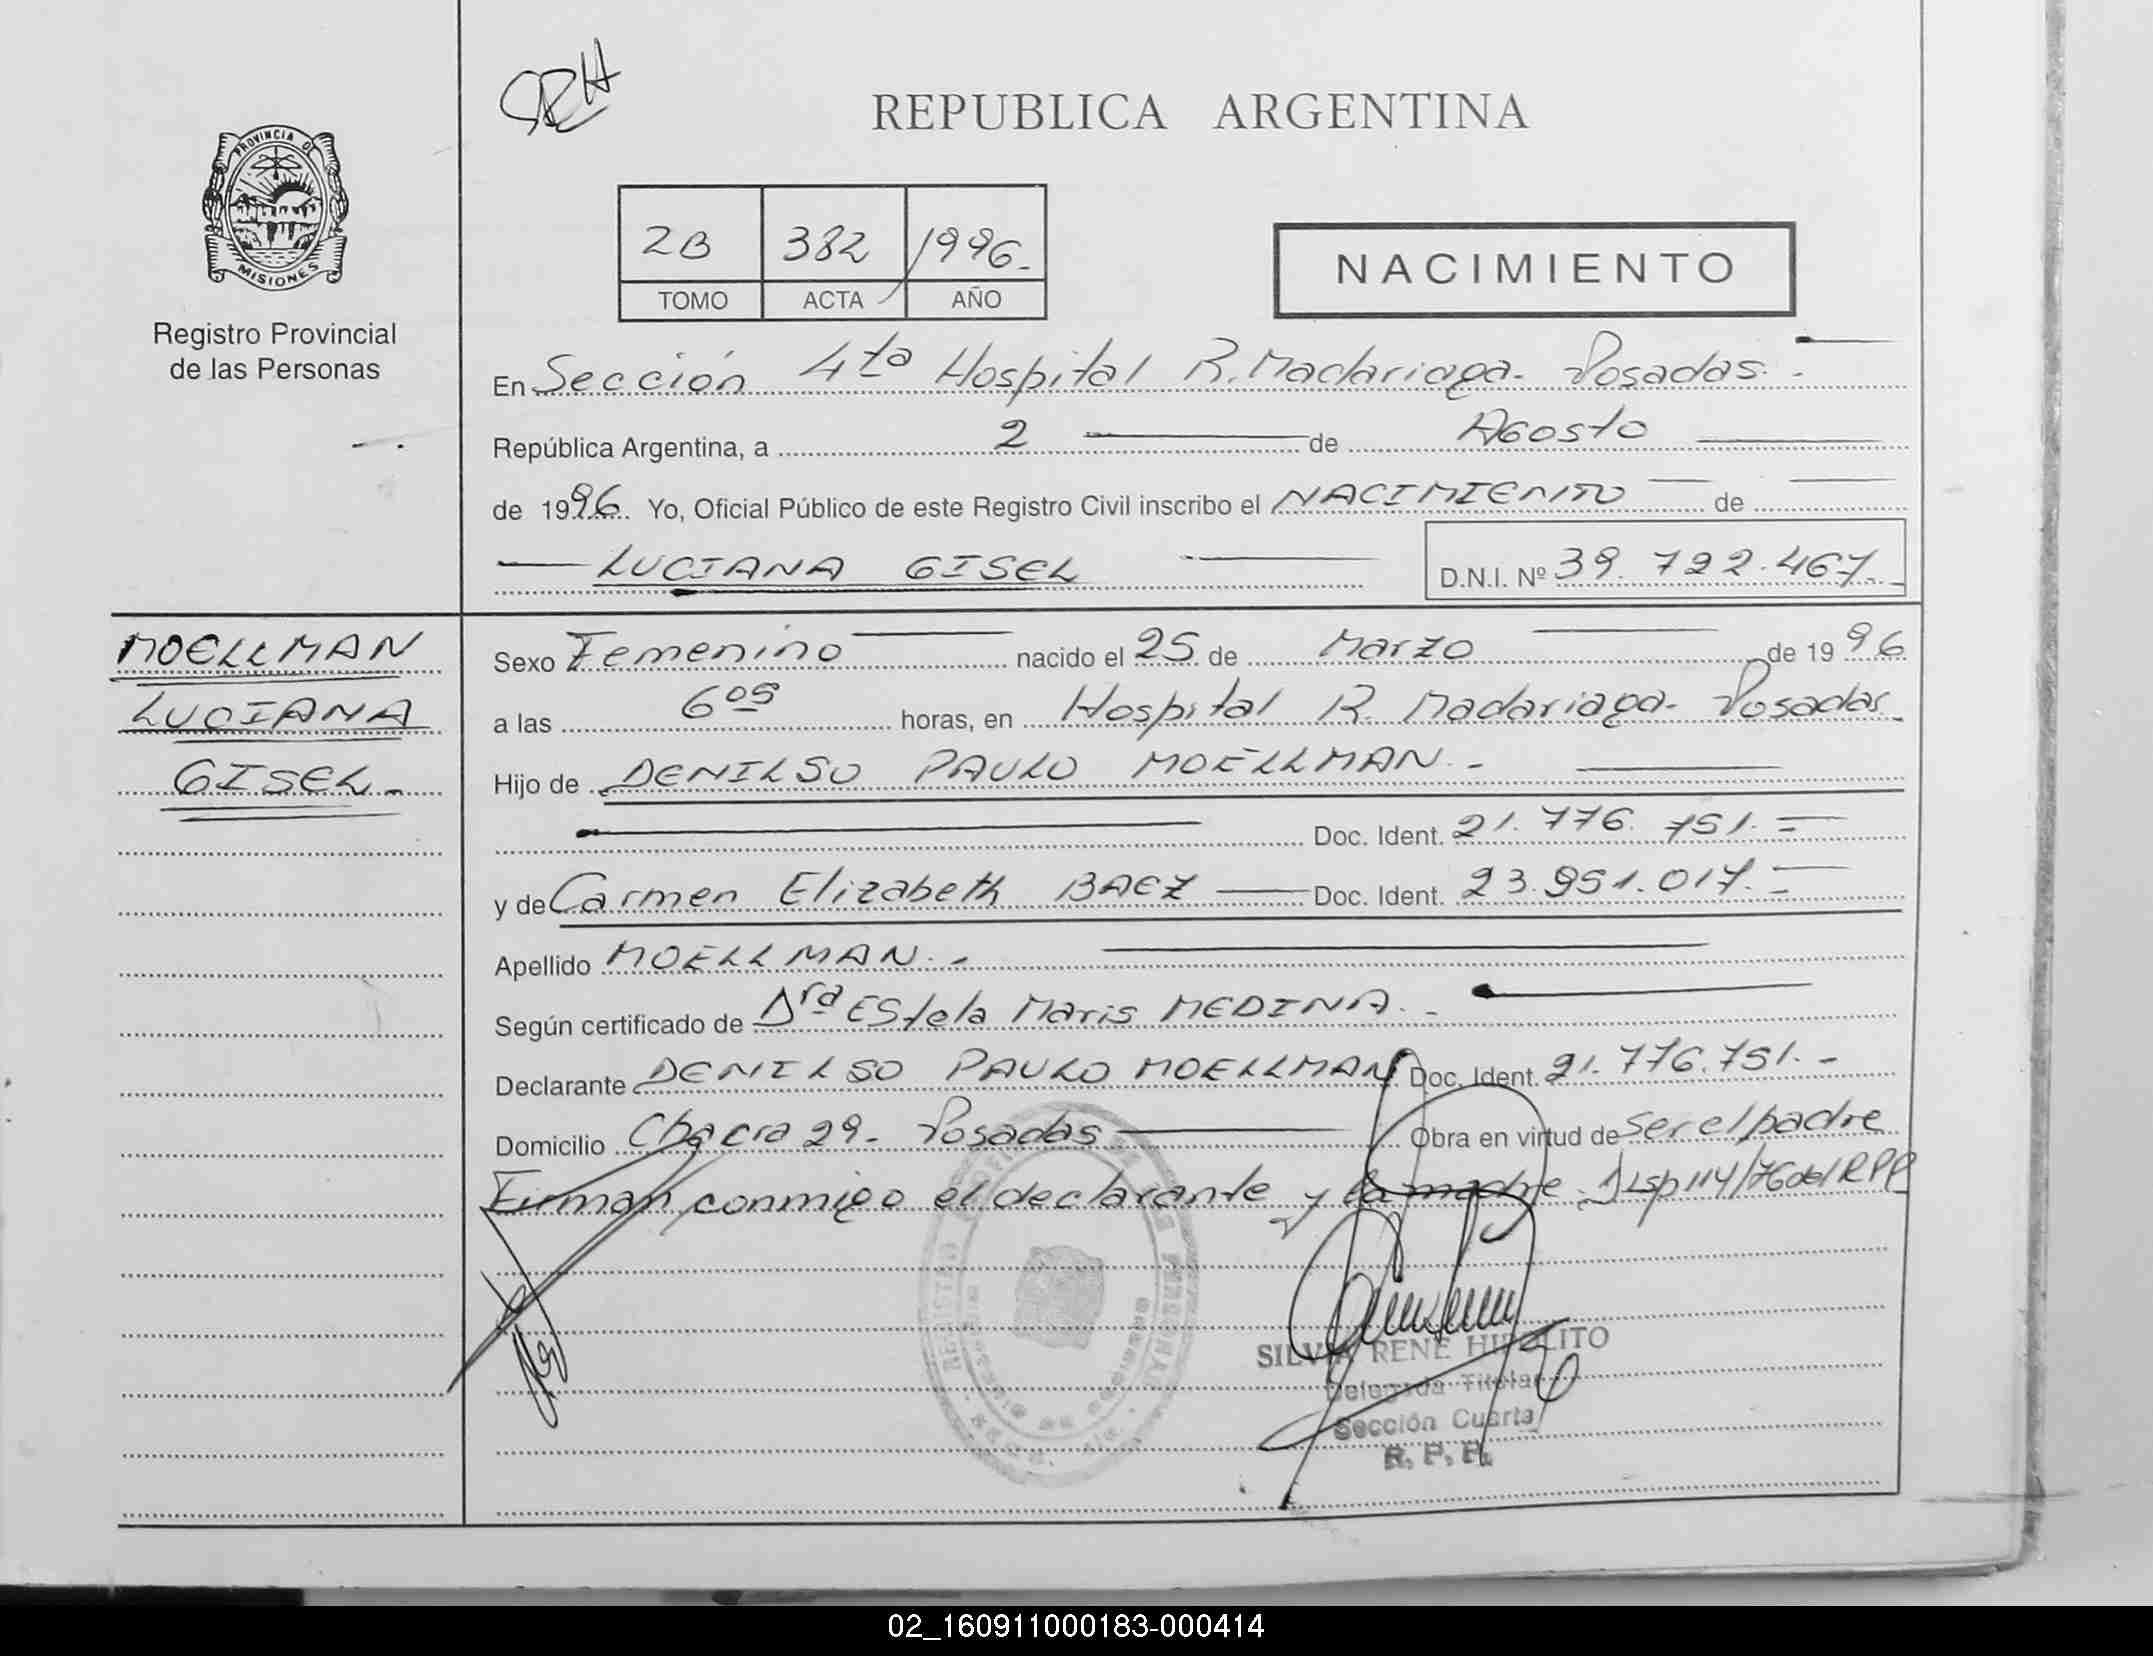 SRH
REPUBLICA ARGENTINA
PROVINCIA D
MISIONES
Registro Provincial
de las Personas
2B 382 1996.-
TOMO ACTA AÑO
NACIMIENTO
En Sección 4ta Hospital R. Madariaga - Posadas. -
República Argentina, a 2 de Agosto
de 1996. Yo, Oficial Público de este Registro Civil inscribo el NACIMIENTO de
LUCIANA GISEL D.N.I. Nº 39.722.467.-
MOELLMAN
LUCIANA
GISEL.-
Sexo Femenino nacido el 25 de Marzo de 1996
a las 6 05 horas, en Hospital R. Madariaga - Posadas.
Hijo de DENILSO PAULO MOELLMAN. -
Doc. Ident. 21.776.751.=
y de Carmen Elizabeth BAEZ Doc. Ident. 23.951.017.=
Apellido MOELLMAN. -
Según certificado de Dra Estela Maris MEDINA. -
Declarante DENILSO PAULO MOELLMAN Doc. Ident. 21.776.751. -
Domicilio Chacra 29 - Posadas Obra en virtud de Ser el padre
Firman conmigo el declarante y la madre. Disp 114/76 del RPP
SILVIA RENE HIPOLITO
Delegada Titular
Sección Cuarta
R. P. P.
02_160911000183-000414